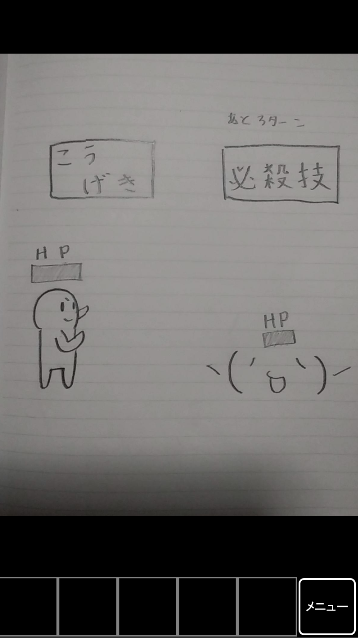 あと3ターン
こう
げき
必殺技
HP
HP
＼( ´ o ` )／
メニュー